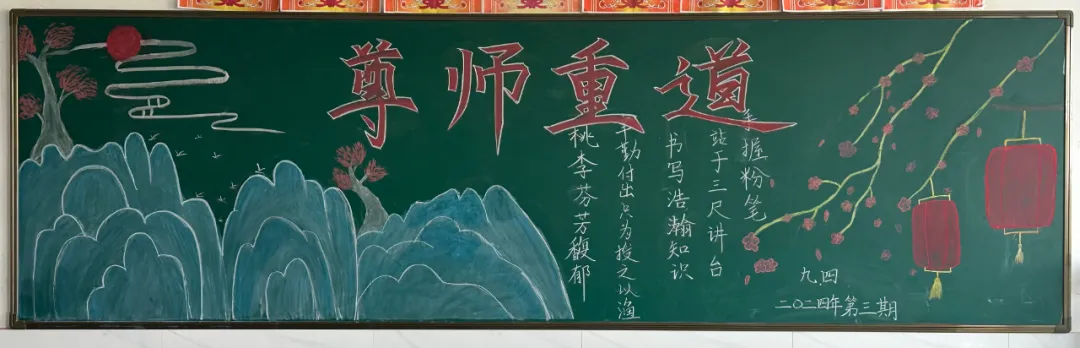 尊师重道
手握粉笔
站于三尺讲台
书写浩瀚知识
辛勤付出只为授之以渔
桃李芬芳馥郁
九.四
二〇二四年第三期